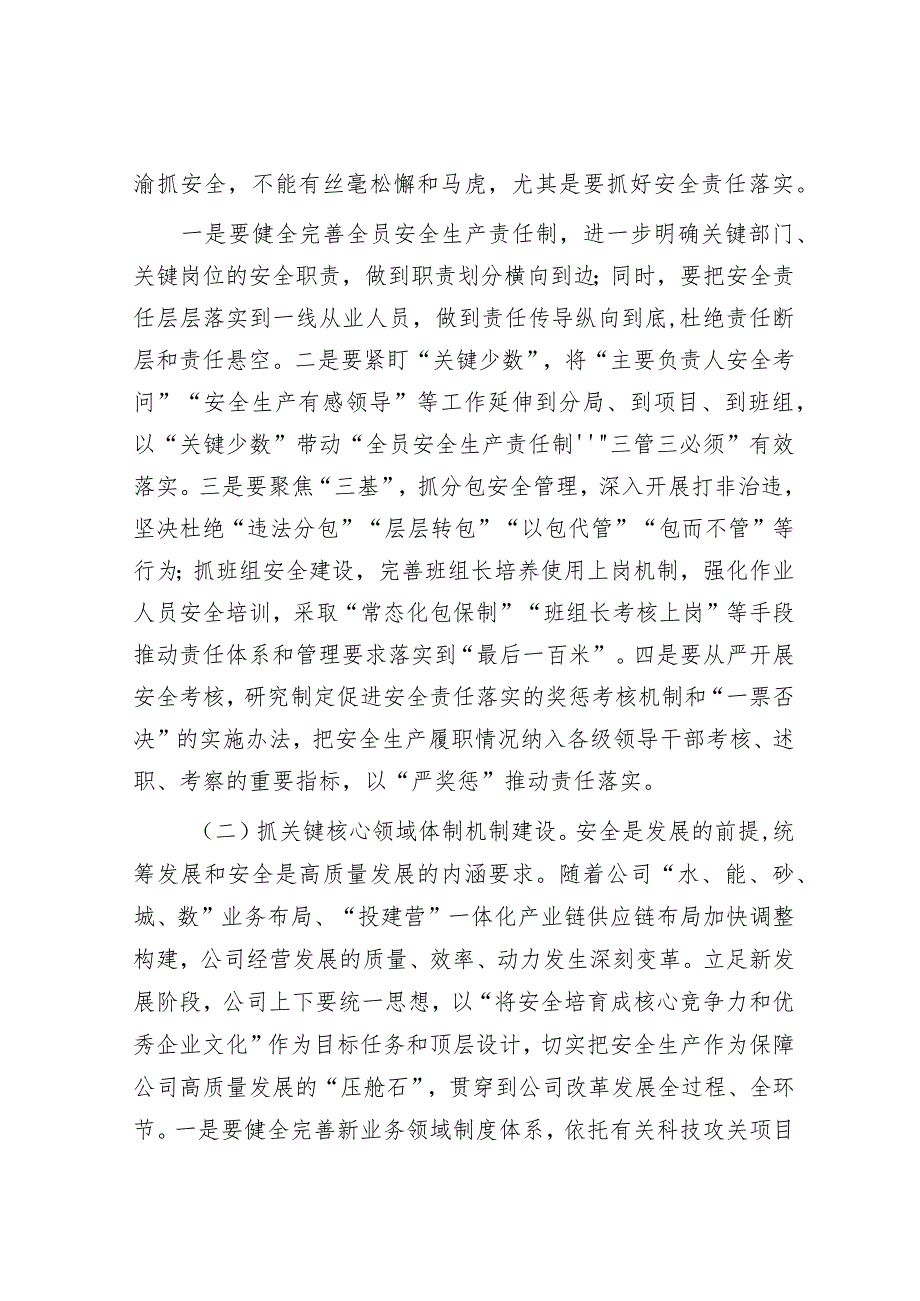 渝抓安全，不能有丝毫松懈和马虎，尤其是要抓好安全责任落实。
一是要健全完善全员安全生产责任制，进一步明确关键部门、
关键岗位的安全职责，做到职责划分横向到边；同时，要把安全责
任层层落实到一线从业人员，做到责任传导纵向到底,杜绝责任断
层和责任悬空。二是要紧盯“关键少数”，将“主要负责人安全考
问”“安全生产有感领导”等工作延伸到分局、到项目、到班组，
以“关键少数”带动“全员安全生产责任制''"三管三必须”有效
落实。三是要聚焦“三基”，抓分包安全管理，深入开展打非治违，
坚决杜绝“违法分包”“层层转包”“以包代管”“包而不管”等
行为；抓班组安全建设，完善班组长培养使用上岗机制，强化作业
人员安全培训，采取“常态化包保制”“班组长考核上岗”等手段
推动责任体系和管理要求落实到“最后一百米”。四是要从严开展
安全考核，研究制定促进安全责任落实的奖惩考核机制和“一票否
决”的实施办法，把安全生产履职情况纳入各级领导干部考核、述
职、考察的重要指标，以“严奖惩”推动责任落实。
（二）抓关键核心领域体制机制建设。安全是发展的前提,统
筹发展和安全是高质量发展的内涵要求。随着公司“水、能、砂、
城、数”业务布局、“投建营”一体化产业链供应链布局加快调整
构建，公司经营发展的质量、效率、动力发生深刻变革。立足新发
展阶段，公司上下要统一思想，以“将安全培育成核心竞争力和优
秀企业文化”作为目标任务和顶层设计，切实把安全生产作为保障
公司高质量发展的“压舱石”，贯穿到公司改革发展全过程、全环
节。一是要健全完善新业务领域制度体系，依托有关科技攻关项目